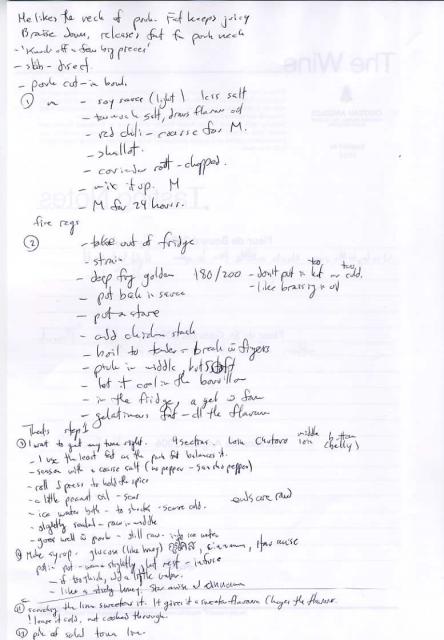 He likes the neck of pork. Fat keeps juicy
Braise down, releases fat for pork neck
- 'Knock off a few big pieces'
- direct.
- pork cut in bowl.
① - soy sauce (light) less salt
- too much salt, draws flavour out
- red chili - coarse for M.
- shallot.
- coriander root - chopped.
- mix it up. M
- M for 24 hours.
five
② - take out of fridge
- strain
- deep fry golden 180/200 - don't put in too hot or too cold.
- like braising in oil
- put back in sauce
- put a stare
- add chicken stock
- boil to tender = break w fingers
- pork in middle, but soft
- let it cool in the bouillon
- in the fridge, a gel w form
- gelatinous fat - all the flavour
step 1
① I want to get my tuna right. 4 sections. loin Chutoro middle loin bottom (belly)
- I use the least fat as the pork fat balances it.
- season with a coarse salt (no pepper - sansho pepper)
- roll & press to hold the spice
- a little peanut oil - sear
- ice water bath - to shock - scare cold. ends are raw
- slightly sealed - raw in middle
- goes well w pork - still raw. into ice water
② Make syrup. glucose (like honey) cinnamon, star anise
put in pot - warm slightly, let rest - infuse
- if too thick, add a little water.
- like a sticky honey. Star anise & cinnamon
the lime sweetens it. It gives it a sweeter flavour. Changes the flavour.
! leave it cold, not cooked through.
of salad